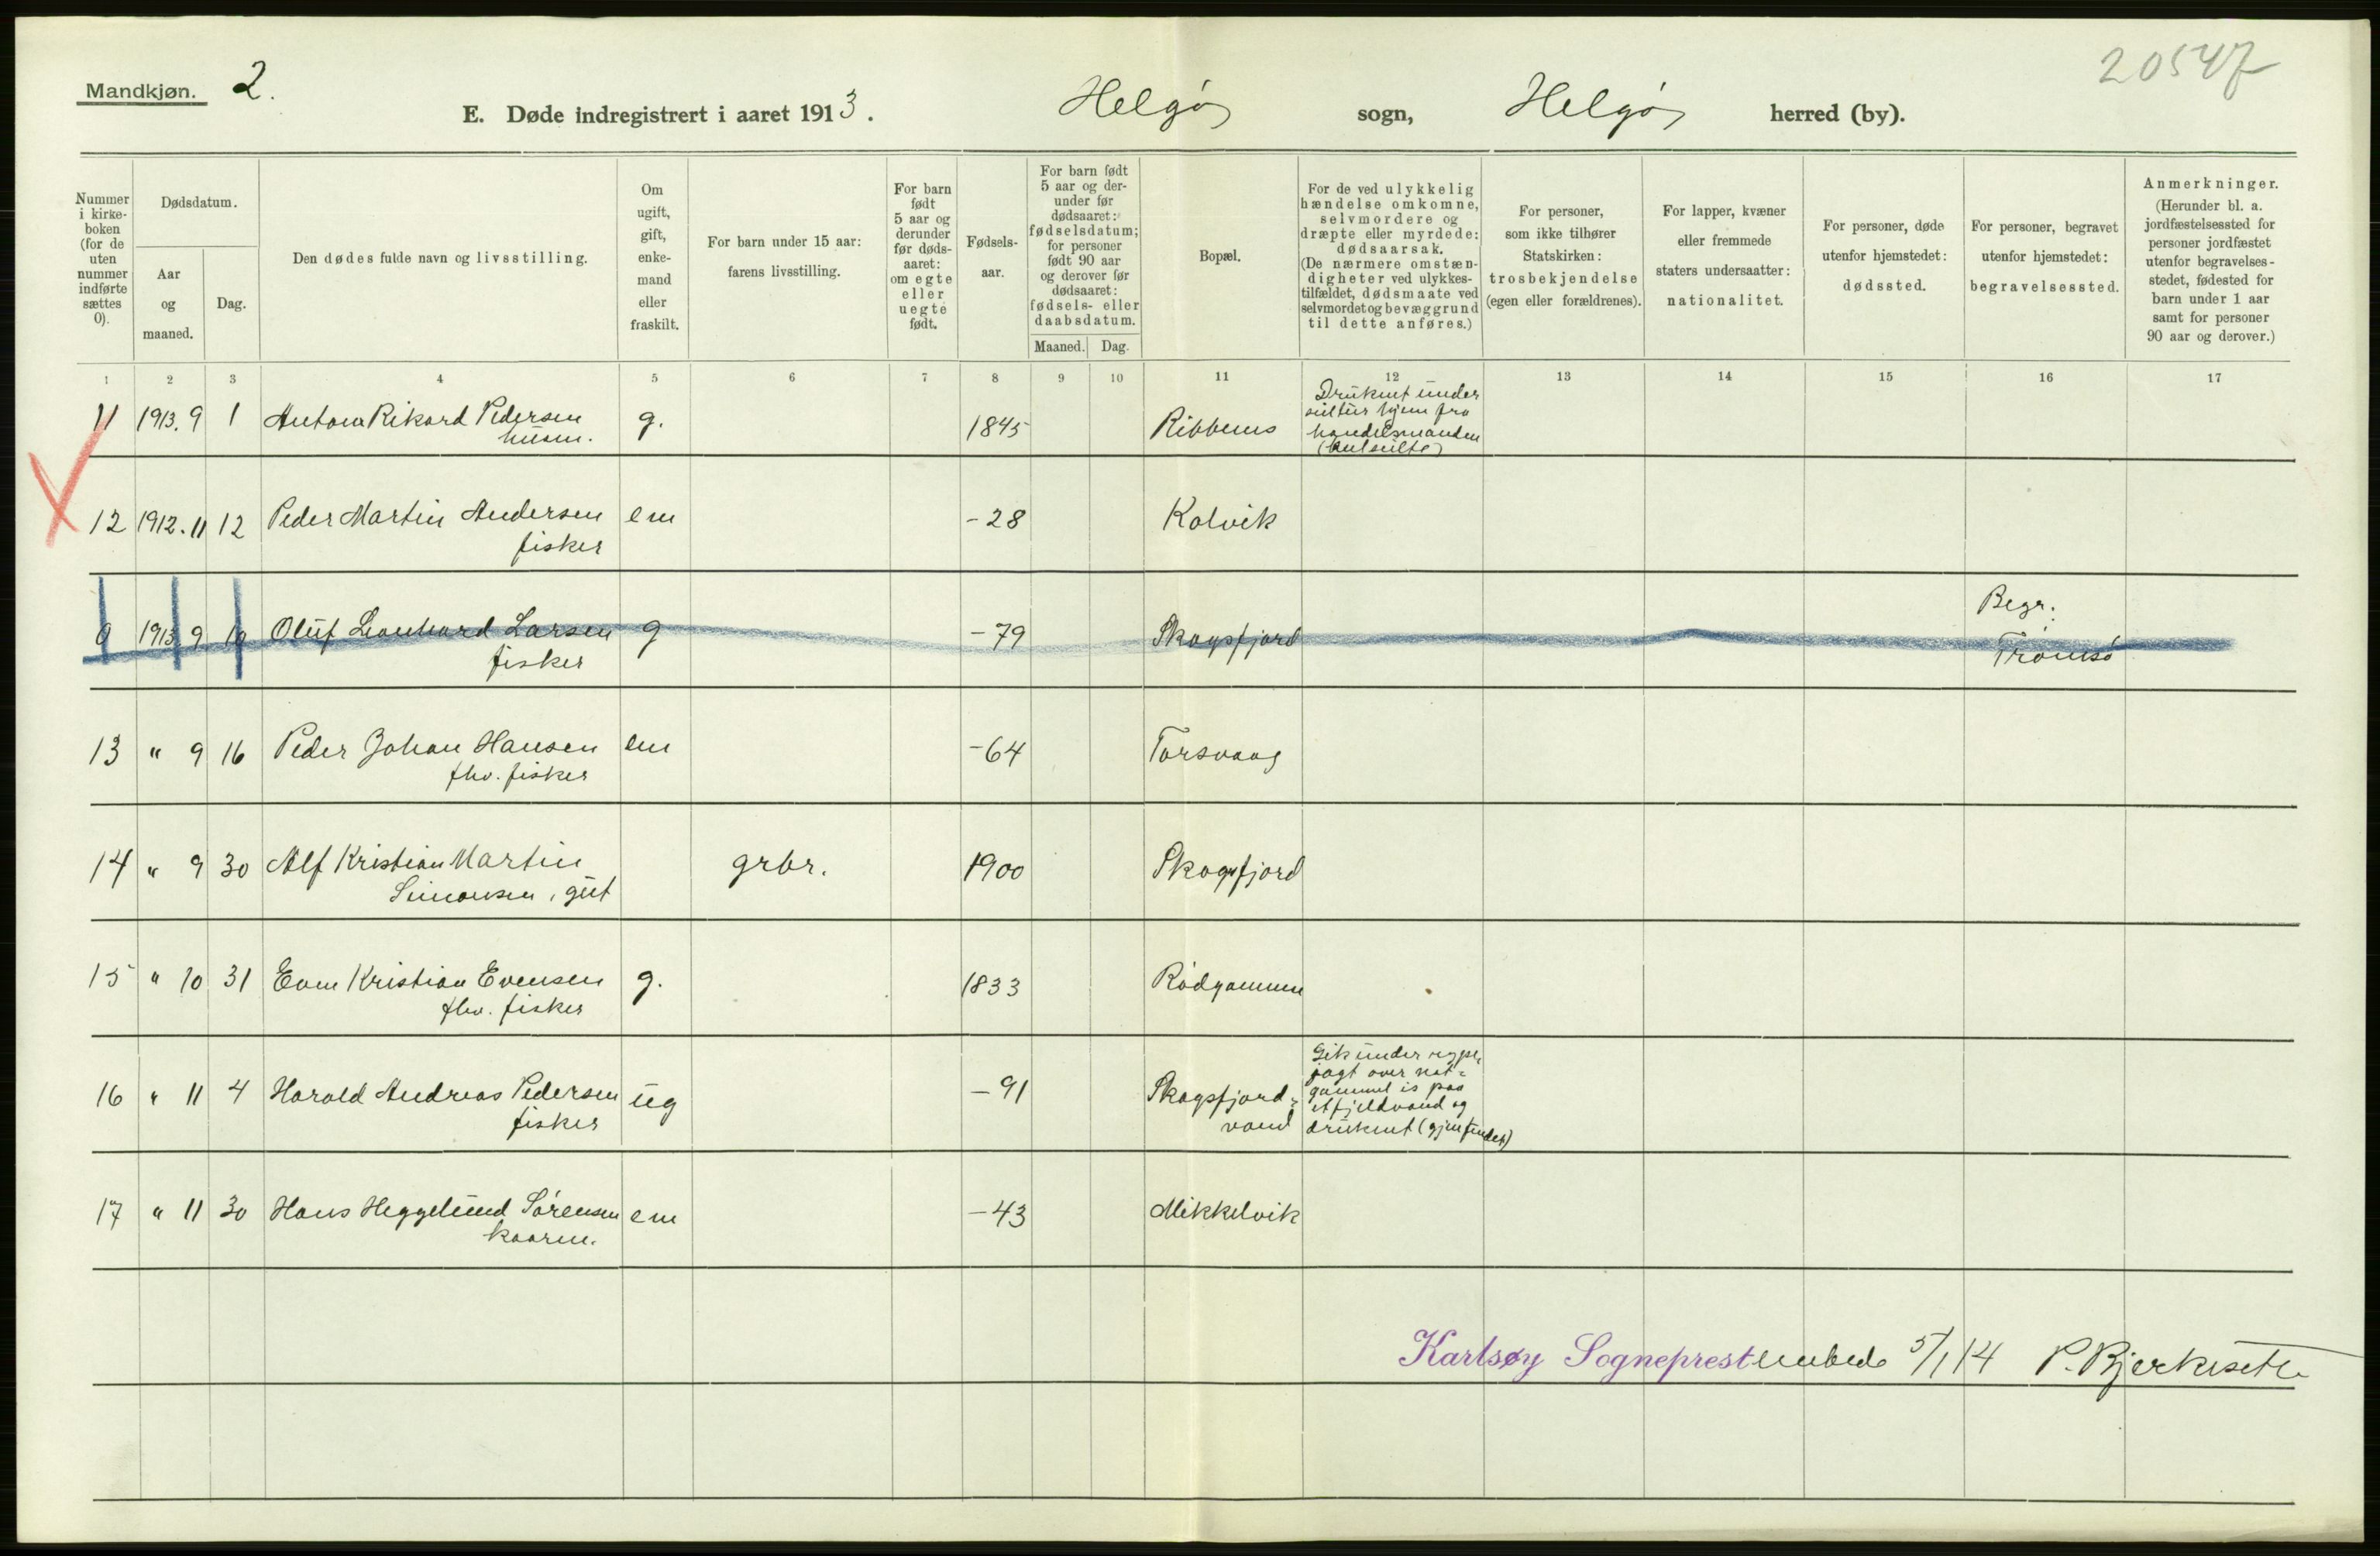 Mandkjøn. 2.
20547
E. Døde indregistrert i aaret 1913. Helgø sogn, Helgø herred (by).
Nummer i kirkeboken (for de uten nummer indførte sættes 0).
Dødsdatum.
Aar og maaned.
Dag.
Den dødes fulde navn og livsstilling.
Om ugift, gift, enkemand eller fraskilt.
For barn under 15 aar: farens livsstilling.
For barn født 5 aar og derunder før dødsaaret: om egte eller uegte født.
Fødselsaar.
For barn født 5 aar og derunder før dødsaaret: fødselsdatum; for personer født 90 aar og derover før dødsaaret: fødsels- eller daabsdatum.
Maaned. Dag.
Bopæl.
For de ved ulykkelig hændelse omkomne, selvmordere og dræpte eller myrdede: dødsaarsak. (De nærmere omstændigheter ved ulykkestilfældet, dødsmaate ved selvmordet og bevæggrund til dette anføres.)
For personer, som ikke tilhører Statskirken: trosbekjendelse (egen eller forældrenes).
For lapper, kvæner eller fremmede staters undersaatter: nationalitet.
For personer, døde utenfor hjemstedet: dødssted.
For personer, begravet utenfor hjemstedet: begravelsessted.
Anmerkninger. (Herunder bl. a. jordfæstelsessted for personer jordfæstet utenfor begravelsesstedet, fødested for barn under 1 aar samt for personer 90 aar og derover.)
1 2 3 4 5 6 7 8 9 10 11 12 13 14 15 16 17
11 1913. 9 1 Anton Rikard Pedersen g. 1845 Ribbenes Druknet under
husm. seiltur hjem fra
handelsmanden
12 1912. 11 12 Peder Martin Andersen em -28 Kalvik
fisker
0 1913 9 10 Oluf Leonhard Larsen g -79 Skogsfjord Begr. Tromsø
fisker
13 " 9 16 Peder Johan Hansen em -64 Torsvaag
fhv. fisker
14 " 9 30 Alf Kristian Martin grbr. 1900 Skogsfjord
Simonsen, gut
15 " 10 31 Even Kristian Evensen g. 1833 Rødgammen
fhv. fisker
16 " 11 4 Harald Andreas Pedersen ug -91 Skogsfjord=vand Gik under rype
fisker jagt over nat=
gammel is paa
et fjeldvand og
druknet (gjenfundet)
17 " 11 30 Hans Heggelund Sørensen em -43 Mikkelvik
kaarm.
Karlsøy Sogneprestembede 5/1 14 P. Bjerkeseth